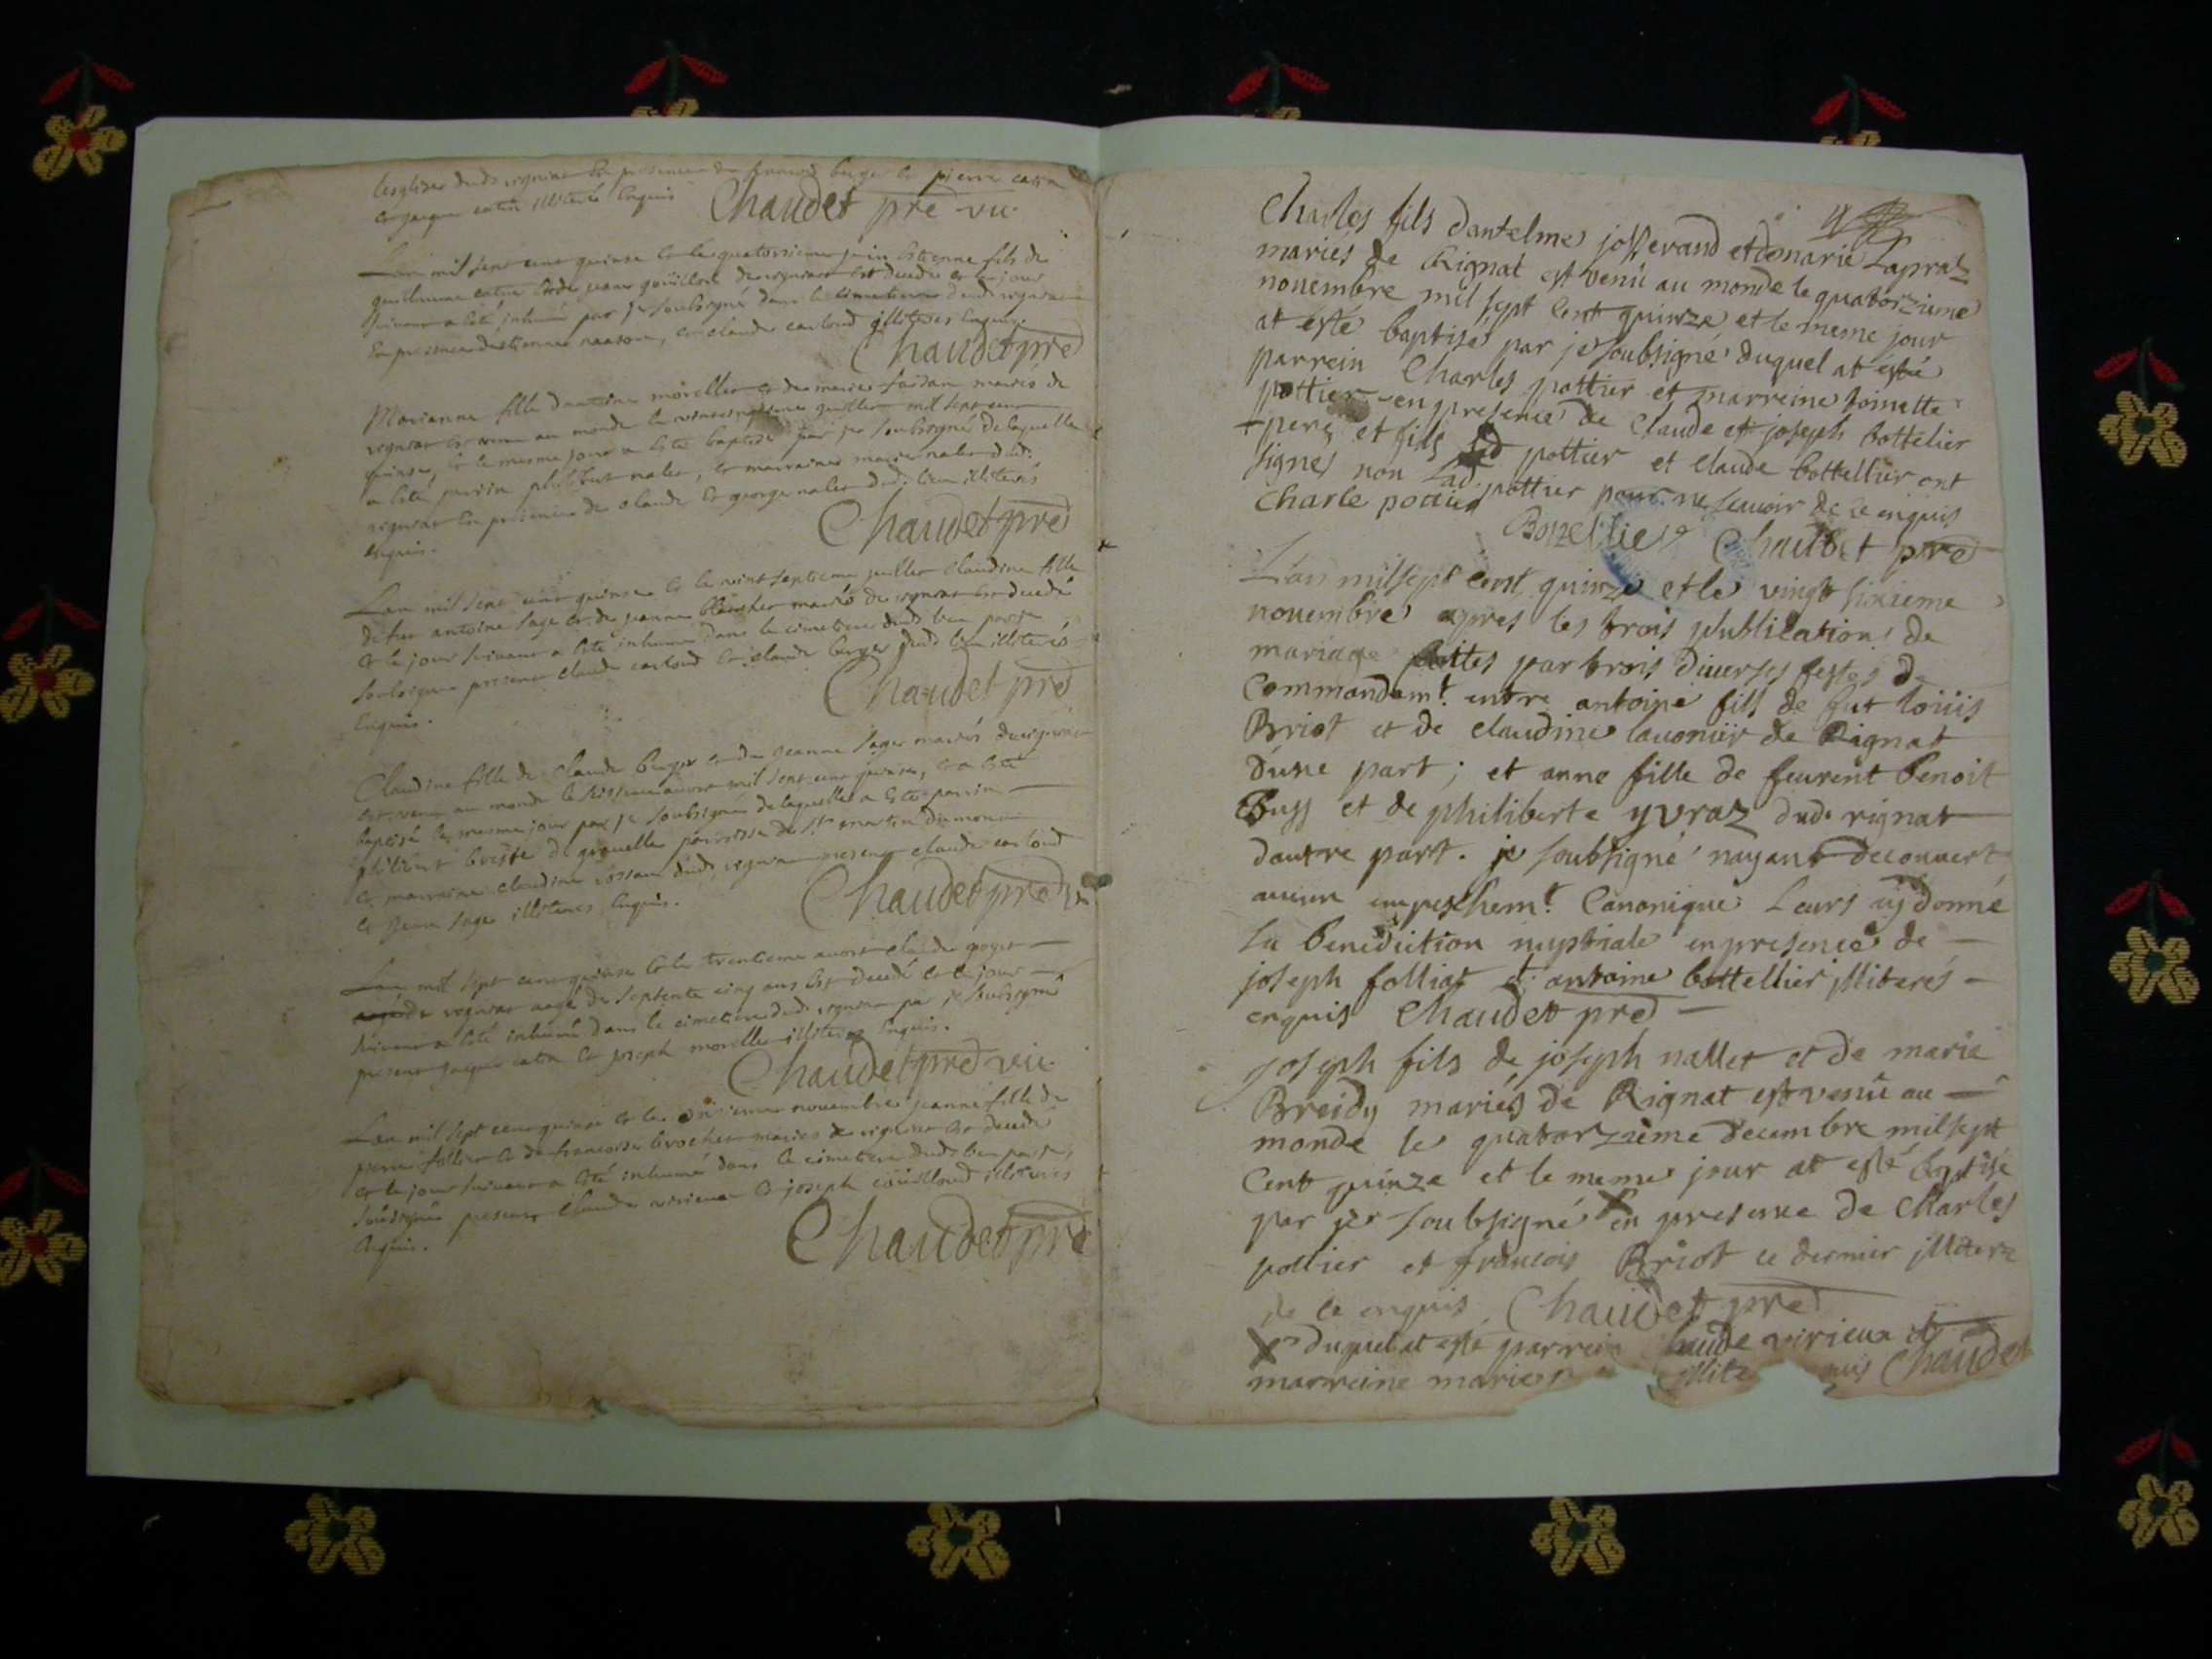 lesglise dud. rignat En presence de francois berger Et pierre catin
Et jaque catin illiterés Enquis Chaudet pre vic.
Lan mil sept cent quinse Et le quatorsieme juin Estienne fils de
guillaume catin Et de jeane goüillou de rignat Est decedé Et le jour
suivant a esté inhumé par je soubsigné dans le cimetiere dud. rignat
En presence destienne, Et claude carloud illiterés Enquis.
Chaudet pre
Marianne fille dantoine morellet Et de marie jardan mariés de
rignat Est venue au monde le juillet mil sept cent
quinse, Et le mesme jour a esté baptisée par je soubsigné de laquelle
a Esté parrin philibert nalet, Et marraine marie nalet dud.
rignat En presence de claude Et george nalet dud. lieu illiterés
enquis.
Chaudet pre
Lan mil sept cent quinse Et le vint septieme juillet Claudine fille
de feu antoine sage Et de jeanne mariés de rignat Est decedé
Et le jour suivant a Esté inhumé dans le cimetiere dud. lieu par je
soubsigné present claude carloud Et claude berger dud. lieu illiterés
Enquis.
Chaudet pre
Claudine fille de Claude berger Et de jeanne sage mariés de rignat
Est venue au monde le aoust mil sept cent quinse, Et a Esté
baptisé le mesme jour par je soubsigné de laquelle a Esté parrin
philibert de gravelle parroisse de St martin du mont
Et marraine claudine dud. rignat present claude carloud
Et jean sage illiterés Enquis.
Chaudet pre
Lan mil sept cent quinse Et le trentieme aoust claude goyet
de rignat aagé de septente cinq ans Est decedé Et le jour
suivant a Esté inhumé dans le cimetiere dud. rignat par je soubsigné
present jaque catin Et joseph morellet illiterés Enquis.
Chaudet pre vic.
Lan mil sept cent quinse Et le onsieme novembre jeanne fille de
pierre folliet Et de francoise brochet mariés de rignat Est decedé
Et le jour suivant a Esté inhumé dans le cimetiere dud. lieu par je
soubsigné present Claude virieux Et joseph coüilloud illiterés
Enquis.
Chaudet pre
Charles fils dantelme josserand et de marie Lapraz
mariés de Rignat est venû au monde le quatorzieme
nouembre mil sept Cent quinze et le meme jour
at esté baptisé par je soubsigné duquel at esté
parrein Charles pottier et marreine toinette
pottier en presence de Claude et joseph bottelier
pere et fils led pottier et Claude bottellier ont
signes non Lad. pottier pour ne scauoir de ce enquis
Charle potier
Botellier Chaudet pre
L'an mil sept cent quinze et le vingt sixieme
nouembre apres les trois publications de
mariage faittes par trois diuerses festes de
Commandemt. entre antoine fils de fut loüis
Briot et de claudine lauoniir de Rignat
dúne part ; et anne fille de feurent Benoit
Buss et de philiberte yvraz dud. rignat
dautre part. je soubsigné nayant decouuert
aucun empeschemt. Canonique Leurs aÿ donné
la benediction nuptiale en presence de
joseph folliat et antoine bottellier jlliterés
enquis Chaudet pre
Joseph fils de joseph nallet et de marie
Breidy mariés de Rignat est venû au
monde le quatorzieme decembre mil sept
Cent quinze et le meme jour at esté baptisé
par je soubsigné X en presence de Charles
pottier et francois Briot ce dernier jllitere
de ce enquis Chaudet pre
X duquel at esté parrein Claude virieux et
marreine marie Chaudet